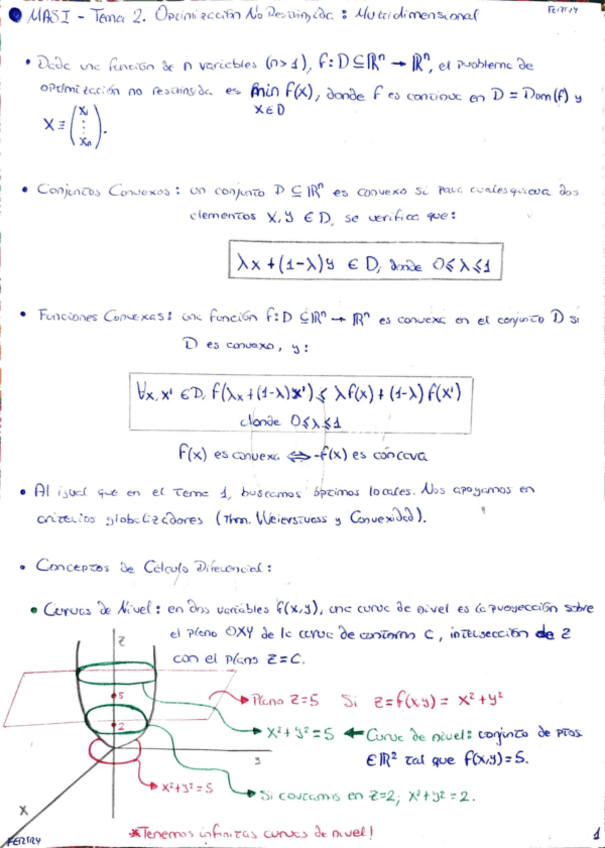 MAS I - Tema 2. Optimización No Restringida: Multidimensional
FERTRY
• Dada una función de n variables (n>1), f: D⊆ℝⁿ → ℝⁿ, el problema de
optimización no restringida es min f(x), donde f es continua en D = Dom(f) y
x∈D
X ≡ (x₁ ⋮ xₙ).
• Conjuntos Convexos: un conjunto D ⊆ ℝⁿ es convexo si para cualesquiera dos
elementos x, y ∈ D, se verifica que:
λx + (1-λ)y ∈ D, donde 0≤λ≤1
• Funciones Convexas: una función f: D ⊆ ℝⁿ → ℝⁿ es convexa en el conjunto D si
D es convexo, y:
∀x, x' ∈ D, f(λx + (1-λ)x') ≤ λf(x) + (1-λ) f(x')
donde 0≤λ≤1
f(x) es convexa ⟺ -f(x) es cóncava
• Al igual que en el Tema 1, buscamos óptimos locales. Nos apoyamos en
criterios globalizadores (Thm. Weierstrass y Convexidad).
• Conceptos de Cálculo Diferencial:
• Curvas de Nivel: en dos variables f(x,y), una curva de nivel es la proyección sobre
el plano OXY de la curva de contorno C, intersección de z
con el plano z=c.
z
5
Plano z=5 Si z=f(x,y) = x²+y²
2
x²+y²=5 ← Curva de nivel: conjunto de ptos.
∈ℝ² tal que f(x,y)=5.
y
x²+y²=5
Si cortamos en z=2; x²+y²=2.
x
*Tenemos infinitas curvas de nivel!
FERTRY
1